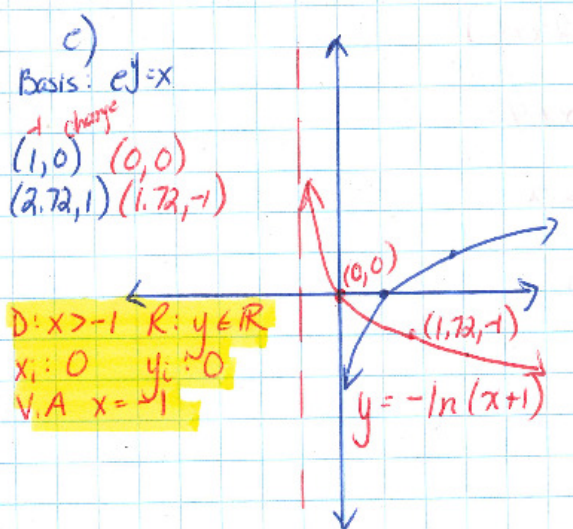 e)
Basis: e^y=x
-1 change
(1,0) (0,0)
(2.72,1) (1.72,-1)
(0,0)
D: x>-1 R: y∈ℝ
(1.72,-1)
xi: 0 yi: 0
V.A x=-1
y=-ln(x+1)